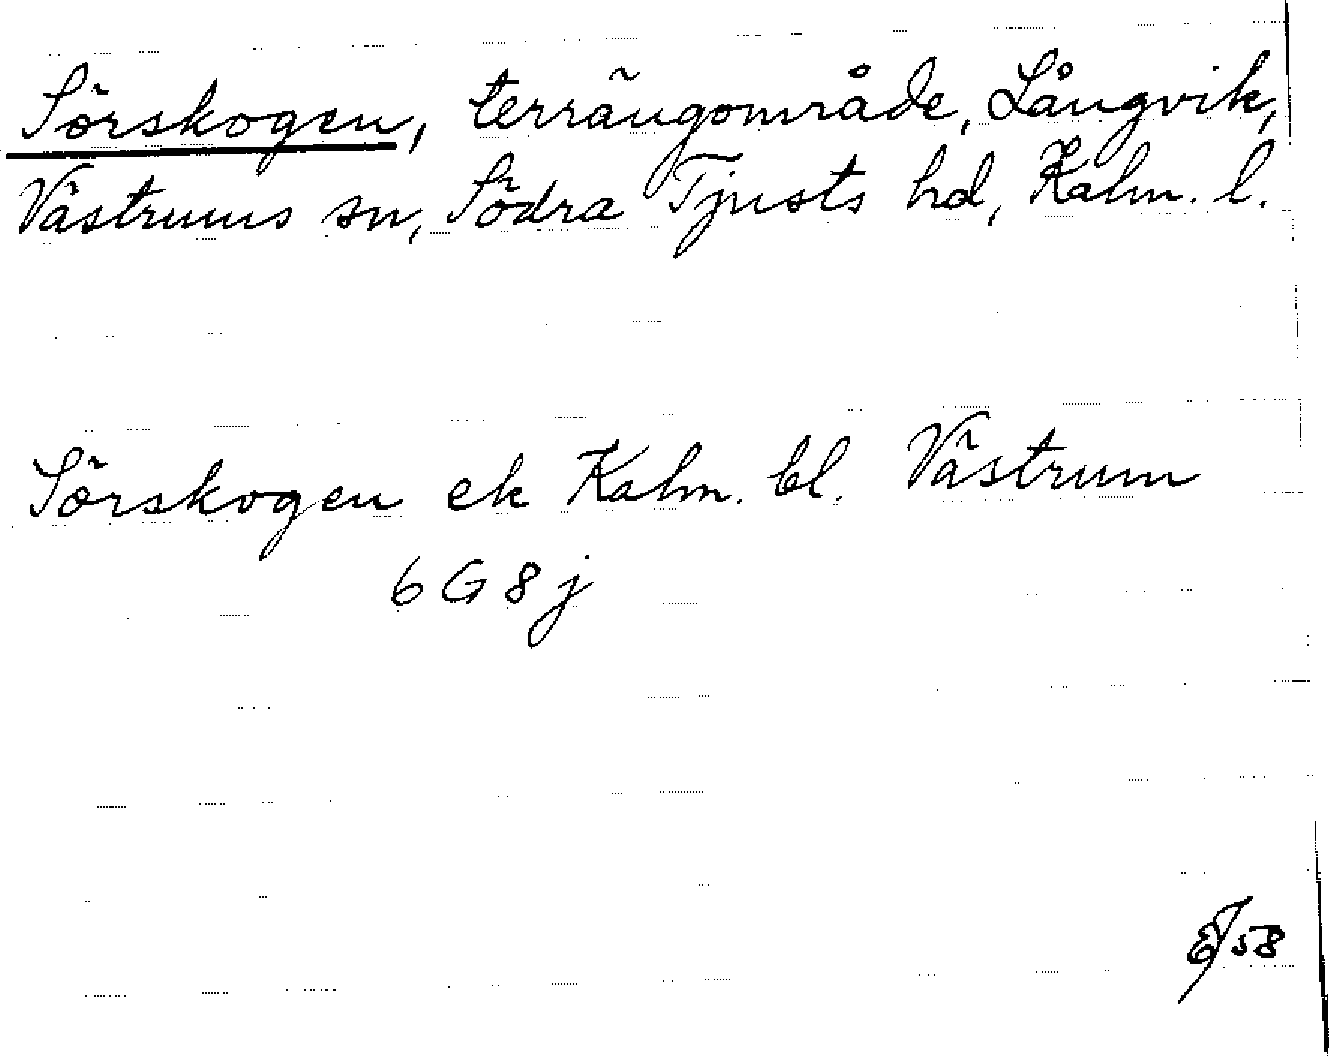 Sörskogen, terrängområde, Långvik,
Västrums sn, Södra Tjusts hd, Kalm. l.
Sörskogen ek Kalm. bl. Västrum
6 G 8 j
58